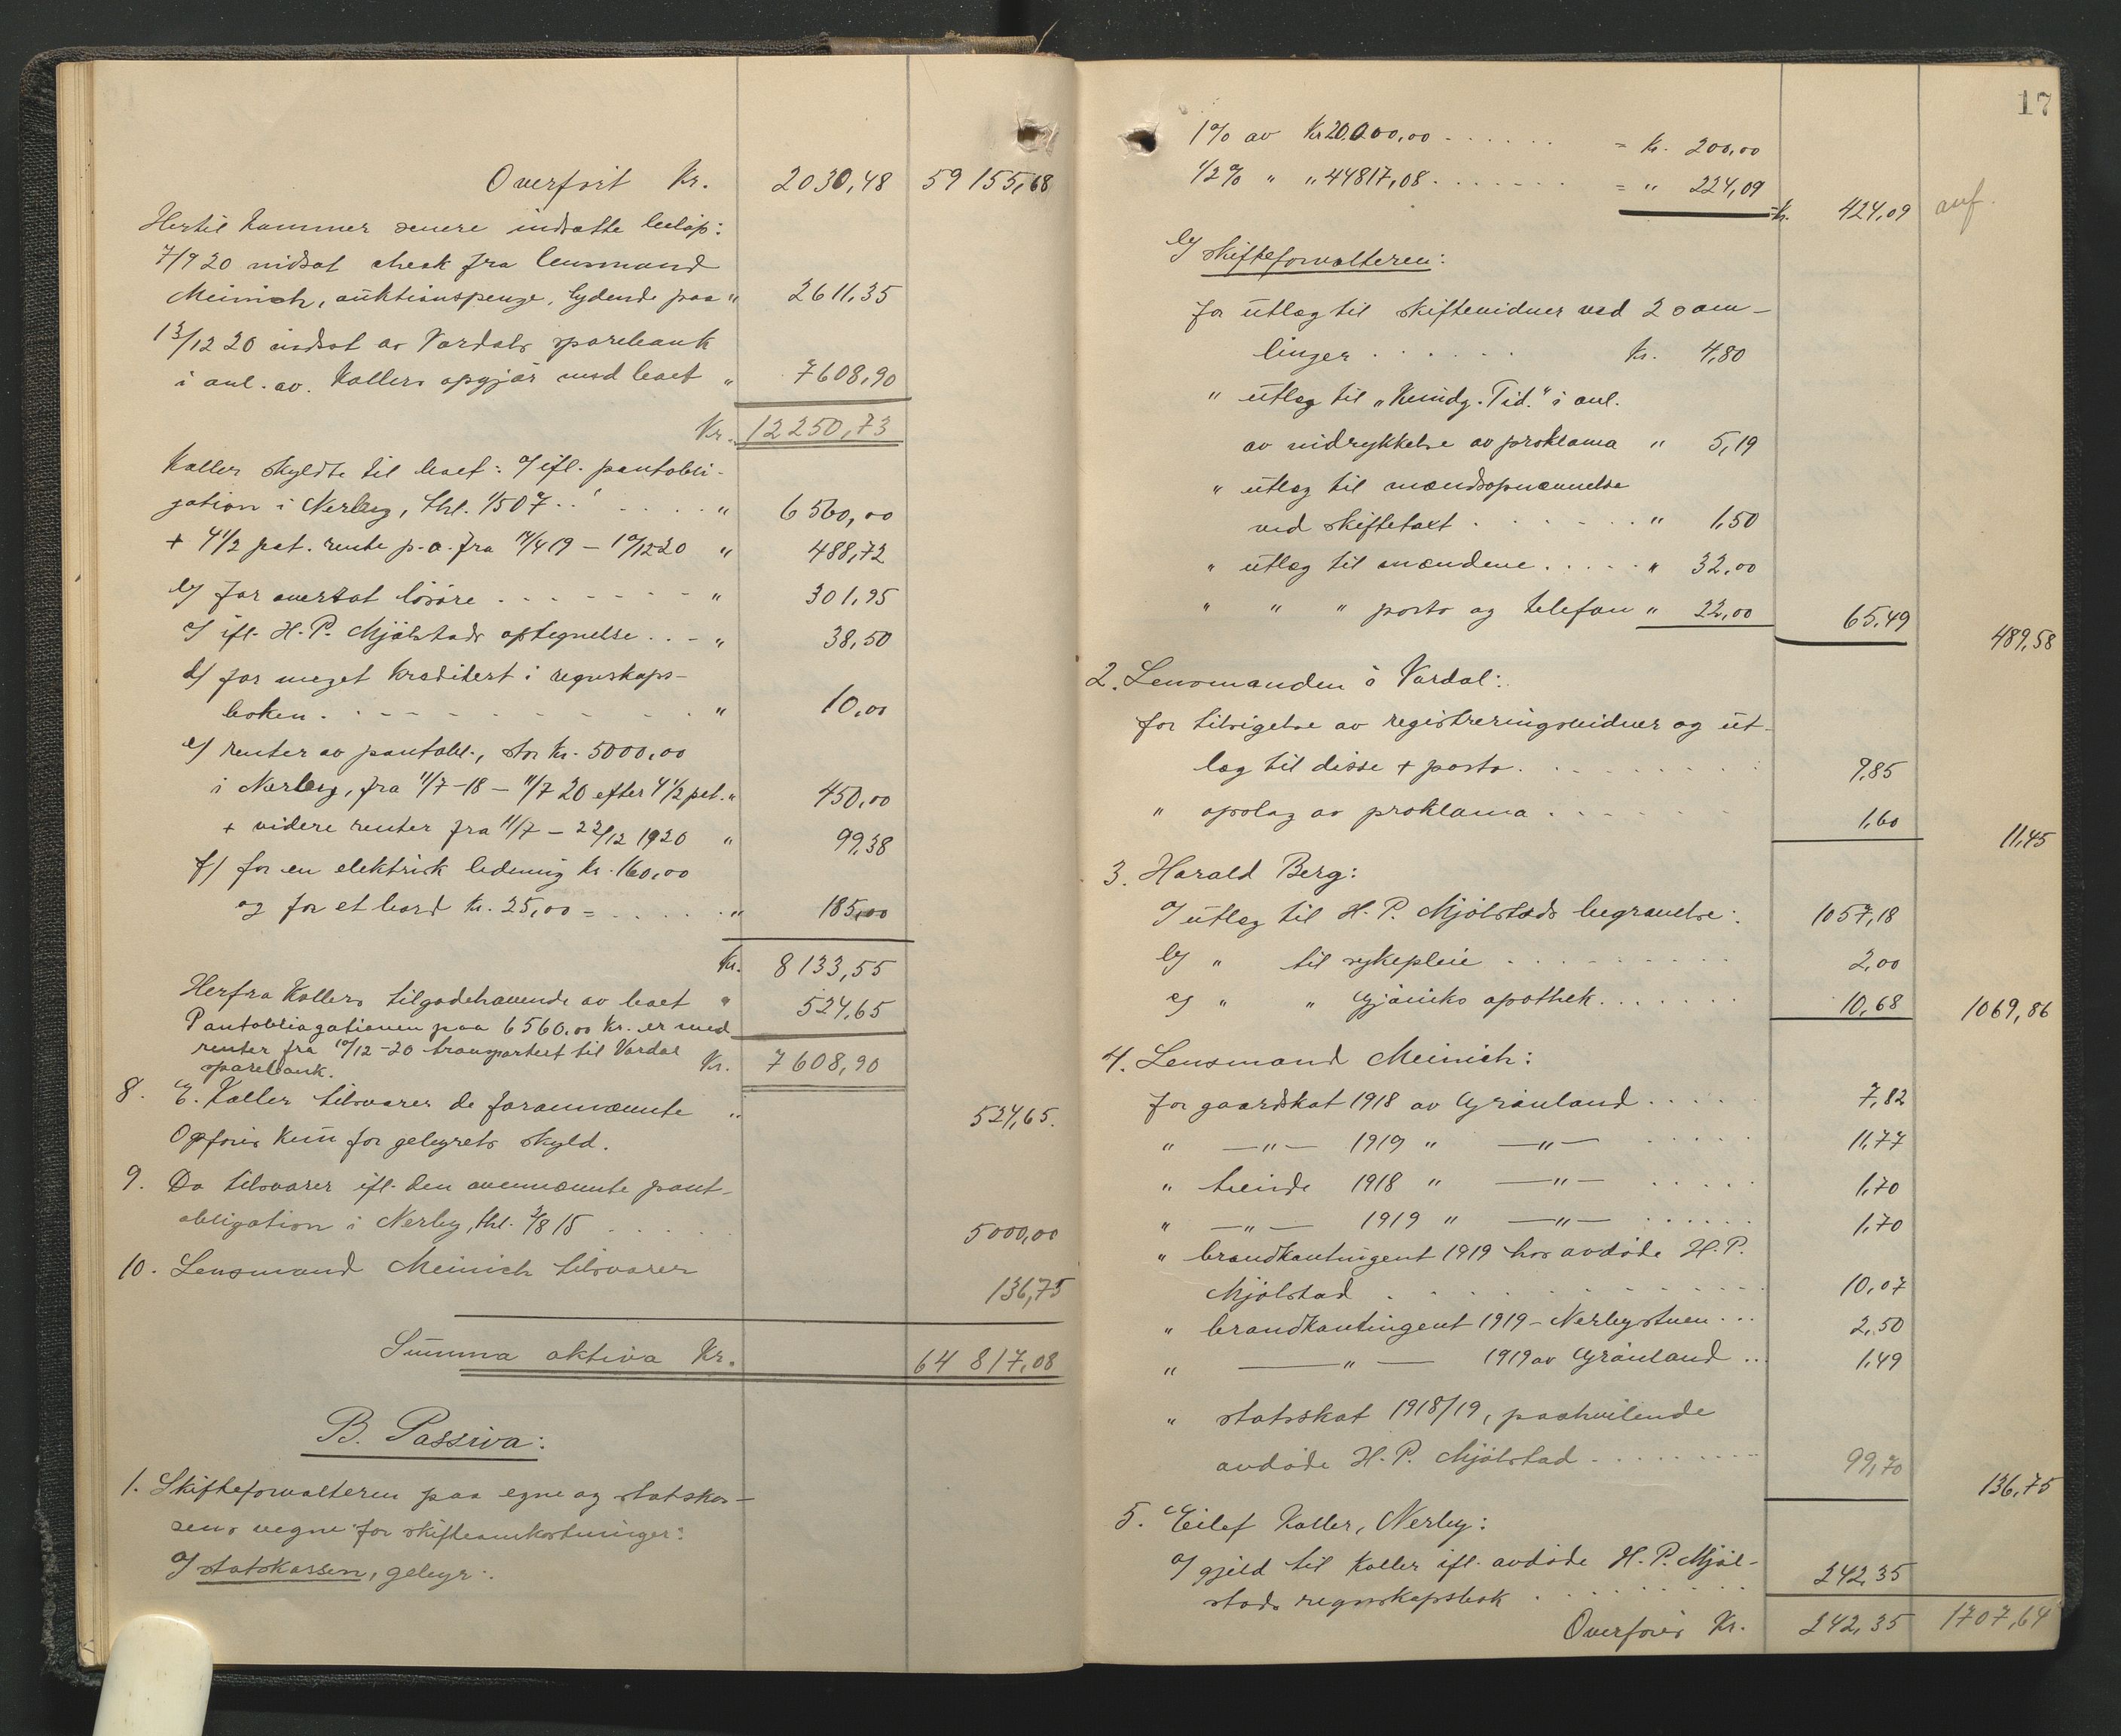 Overført Kr. 2030,48 59 155,68
Hertil kommer senere indsatte beløp:
7/9 20 indsat check fra lensmand
Meinich, auktionspenge, lydende paa " 2611,35
13/12 20 indsat av Vardals sparebank
i anl. av Kallers opgjør med boet " 7608,90
Kr. 12250,73
Kaller skyldte til boet: a/ ifl. pantobli-
gation i Nerby, thl. 1/5 07 . . . . . " 6560,00
+ 4 1/2 pct. rente p.a. fra 14/4 19 – 10/12 20 " 488,72
b/ for overtat løsøre . . . . . . . " 301,95
c/ ifl. H. P. Mjølstads optegnelse . . – " 38,50
d/ for meget kreditert i regnskaps-
boken . . . . . . . . . " 10,00
e/ renter av pantobl., stor kr. 5000,00
i Nerby, fra 11/7 –18 – 11/7 20 efter 4 1/2 pct. " 450,00
+ videre renter fra 11/7 – 22/12 1920 " 99,38
f/ for en elektrisk ledning kr. 160,00
og for et bord kr. 25,00 = . . . . . " 185,00
Kr. 8133,55
Herfra Kallers tilgodehavende av boet " 524,65
Pantobliagationen paa 6560.00 Kr. er med
renter fra 10/12 –20 transportert til Vardal
sparebank. Kr. 7608,90
8. E. Kaller tilsvarer de forannævnte " 524,65.
Opføres kun for gebyrets skyld.
9. Do tilsvarer ifl. den ovennævnte pant-
obligation i Nerby, thl. 3/8 15 . . . . . 5000,00
10. Lensmand Meinich tilsvarer 136,75
Summa aktiva Kr. 64 817,08
B. Passiva:
1. Skifteforvalteren paa egne og statskas-
sens vegne for skifteomkostninger:
a/ statskassen, gebyr:
17
1% av Kr 20.000,00 . . . . . . = Kr. 200,00
1/2 % " " 44817,08 . . . . . . . = " 224,09
= Kr. 424,09 anf.
b/ skifteforvalteren:
for utlæg til skiftevidner ved 2 sam-
linger . . . . . . Kr. 4,80
" utlæg til "Kundg. Tid." i anl.
av indrykkelse av proklama " 5,19
" utlæg til mændsopnævnelse
ved skiftetaxt . . . . . . " 1,50
" utlæg til mændene . . . . . " 32,00
" " " porto og telefon " 22,00 65,49 489,58
2. Lensmanden i Vardal:
for tilsigelse av registreringsvidner og ut-
læg til disse + porto . . . . . . . . . 9,85
" opslag av proklama . . . . . . 1,60 11,45
3. Harald Berg:
a/ utlæg til H. P. Mjølstads begravelse: 1057,18
b/ " til sykepleie . . . . . . . . . 2,00
c/ " " Gjøviks apothek . . . . . . . 10,68 1069,86
4. Lensmand Meinich:
for gaardskat 1918 av Grønland . . . . . 7,82
" —"— 1919 " —"— . . . . . 11,77
" tiende 1918 " —"— . . . . . 1,70
" —"— 1919 " —"— . . . . . . 1,70
" brandkontingent 1919 hos avdøde H. P.
Mjølstad . . . . . . . . . . . . . 10,07
" brandkontingent 1919 – Nerbystuen . . . 2,50
" ——"—— 1919 av Grønland . . . 1,49
" statsskat 1918/19, paahvilende
avdøde H. P. Mjølstad . . . . . . . . . 99,70 136,75
5. Eilef Kaller, Nerby:
a/ gjeld til Kaller ifl. avdøde H. P. Mjøl-
stads regnskapsbok . . . . . . . . . 242,35
Overføres Kr. 242,35 1707,64